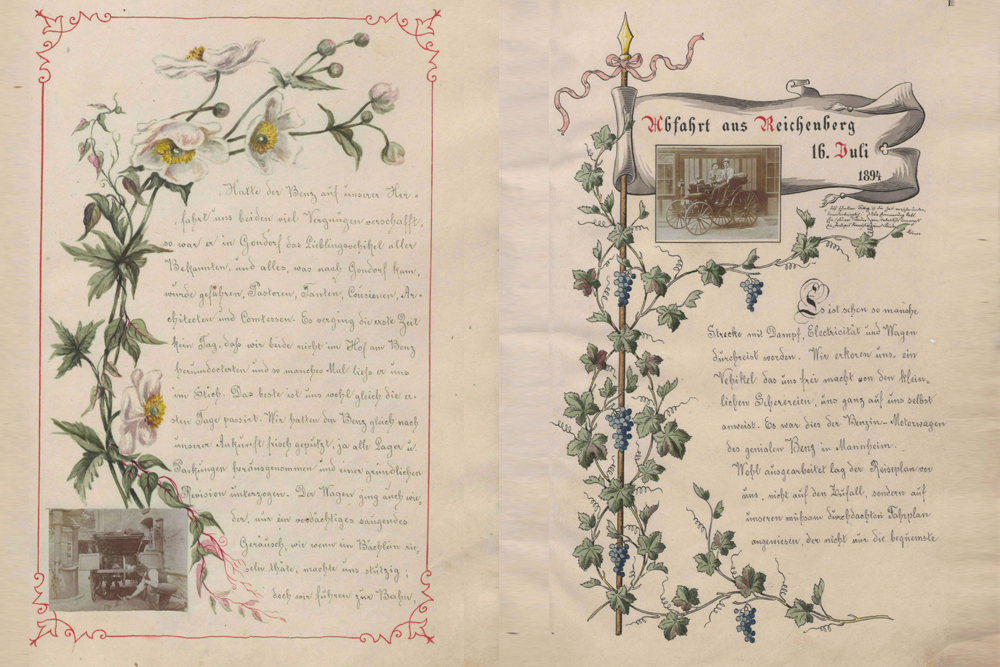 Hatte der Benz auf unserer Her-
fahrt uns beiden viel Vergnügen verschafft,
so war er in Gondorf das Lieblingsvehikel aller
Bekannten, und alles, was nach Gondorf kam,
wurde gefahren, Pastoren, Tanten, Cousinen, Ar-
chitecten und Comtessen. Es verging die erste Zeit
kein Tag, daß wir beide nicht im Hof am Benz
herumdocterten und so manches Mal ließ er uns
im Stich. Das beste ist uns wohl gleich die er-
sten Tage passirt. Wir hatten den Benz gleich nach
unserer Ankunft frisch geputzt, ja alle Lager u.
Packungen herausgenommen und einer gründlichen
Revision unterzogen. Der Wagen ging auch wie-
der, nur ein verdächtiges saugendes
Geräusch, wie wenn ein Bächlein rie-
seln thäte, machte uns stutzig;
doch wir fuhren zur Bahn,
Abfahrt aus Reichenberg
16. Juli
1894
Es ist schon so manche
Strecke mit Dampf, Electricität und Wagen
durchreist worden. Wir erkoren uns, ein
Vehikel das uns frei macht von den klein-
lichen Scherereien, uns ganz auf uns selbst
anweist. Es war dies der Benzin-Motorwagen
des genialen Benz in Mannheim.
Wohl ausgearbeitet lag der Reiseplan vor
uns, nicht auf den Zufall, sondern auf
unseren mühsam durchdachten Fahrplan
angewiesen, der nicht nur die bequemste